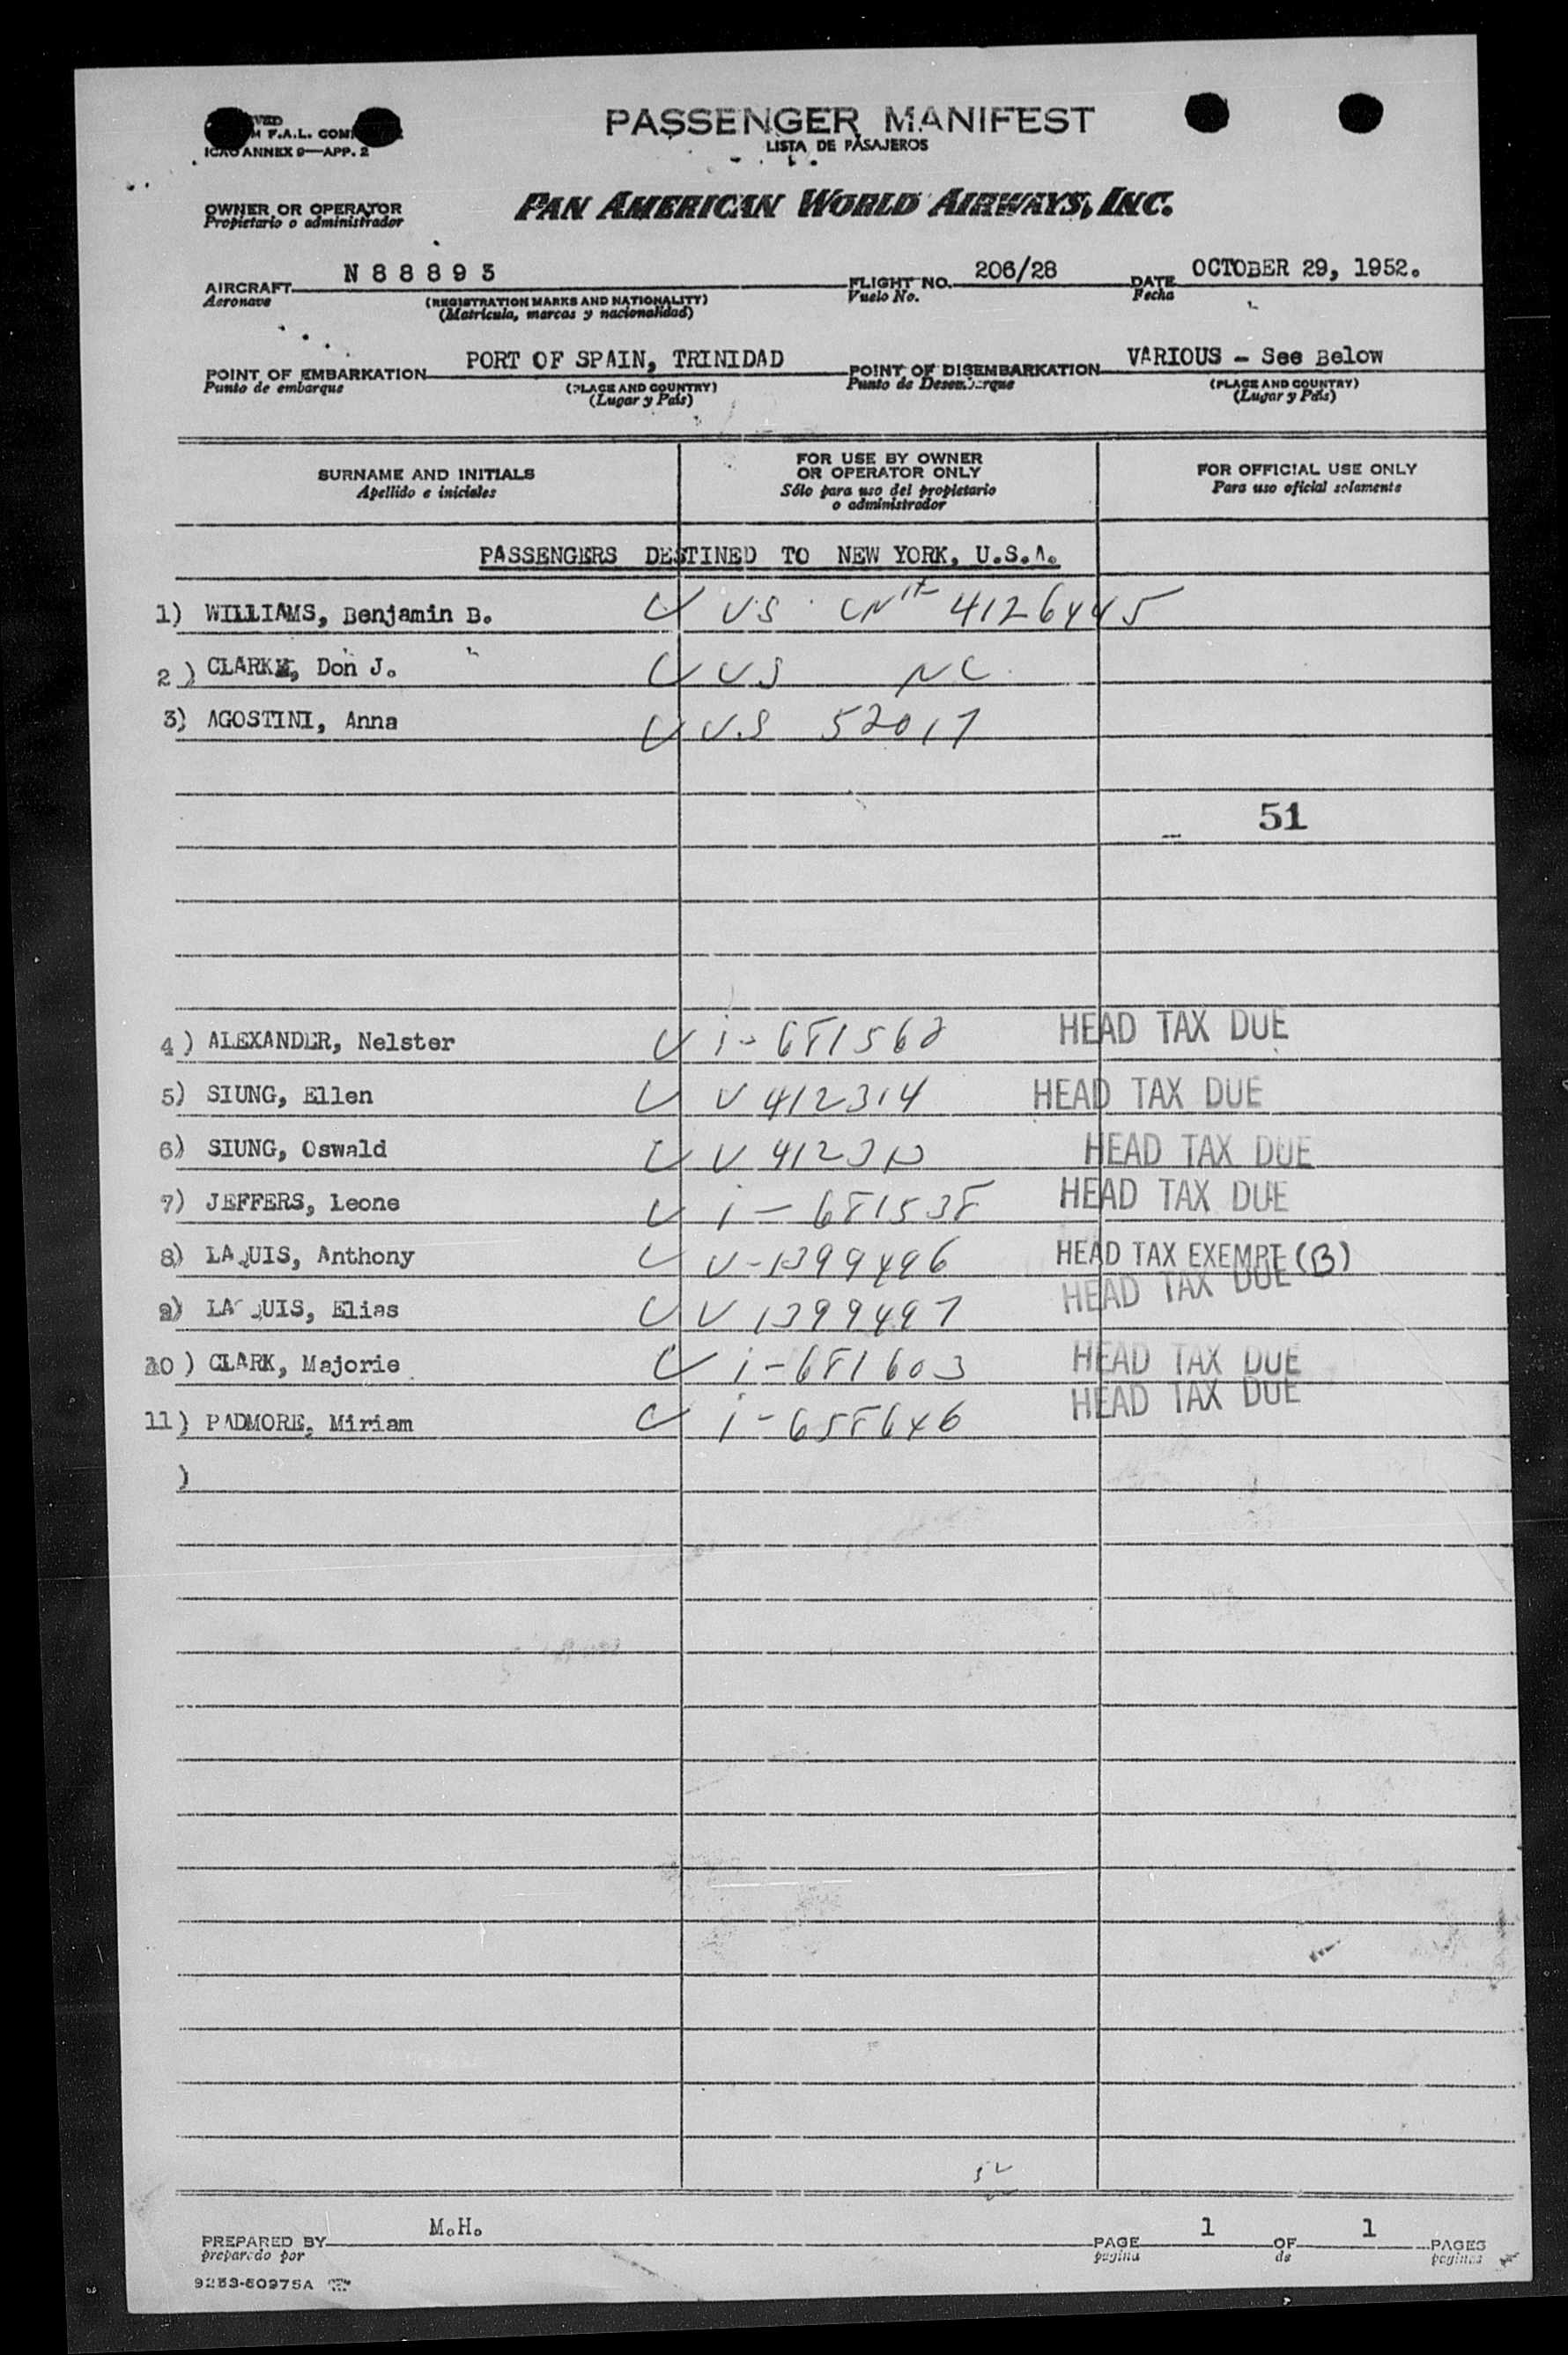 PASSENGER MANIFEST
LISTA DE PASAJEROS
F.A.L.
ICAO ANNEX 9—APP. 2
OWNER OR OPERATOR
Propietario o administrador
PAN AMERICAN WORLD AIRWAYS, INC.
AIRCRAFT N 8 8 8 9 3 FLIGHT NO. 206/28 DATE OCTOBER 29, 1952.
Aeronave (REGISTRATION MARKS AND NATIONALITY) Vuelo No. Fecha
(Matrícula, marcas y nacionalidad)
POINT OF EMBARKATION PORT OF SPAIN, TRINIDAD POINT OF DISEMBARKATION VARIOUS - See Below
Punto de embarque (PLACE AND COUNTRY) Punto de Desembarque (PLACE AND COUNTRY)
(Lugar y País) (Lugar y País)
SURNAME AND INITIALS FOR USE BY OWNER OR OPERATOR ONLY FOR OFFICIAL USE ONLY
Apellido e iniciales Sólo para uso del propietario o administrador Para uso oficial solamente
PASSENGERS DESTINED TO NEW YORK, U.S.A.
1) WILLIAMS, Benjamin B. US 4126445
2) CLARKE, Don J. US NC
3) AGOSTINI, Anna U.S 52017
51
4) ALEXANDER, Nelster i-681562 HEAD TAX DUE
5) SIUNG, Ellen V 412314 HEAD TAX DUE
6) SIUNG, Oswald V HEAD TAX DUE
7) JEFFERS, Leone i-681538 HEAD TAX DUE
8) LAQUIS, Anthony V-1399496 HEAD TAX EXEMPT (B)
9) LAQUIS, Elias V 1399497 HEAD TAX DUE
10) CLARK, Majorie i-681603 HEAD TAX DUE
11) PADMORE, Miriam i-658646 HEAD TAX DUE
)
PREPARED BY M.H. PAGE 1 OF 1 PAGES
preparado por pagina de paginas
9253-50975A